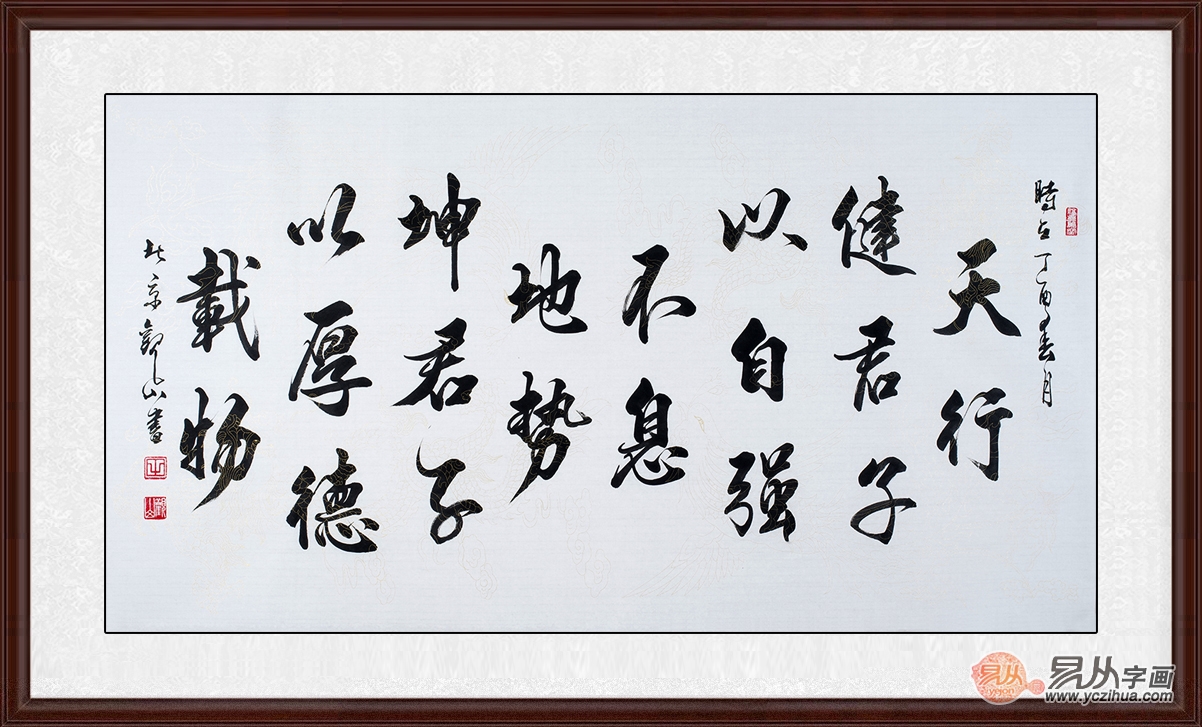 時在丁酉春月
天行
健君子
以自强
不息
地势
坤君子
以厚德
載物
北京觀山書
易从字画
www.yczihua.com